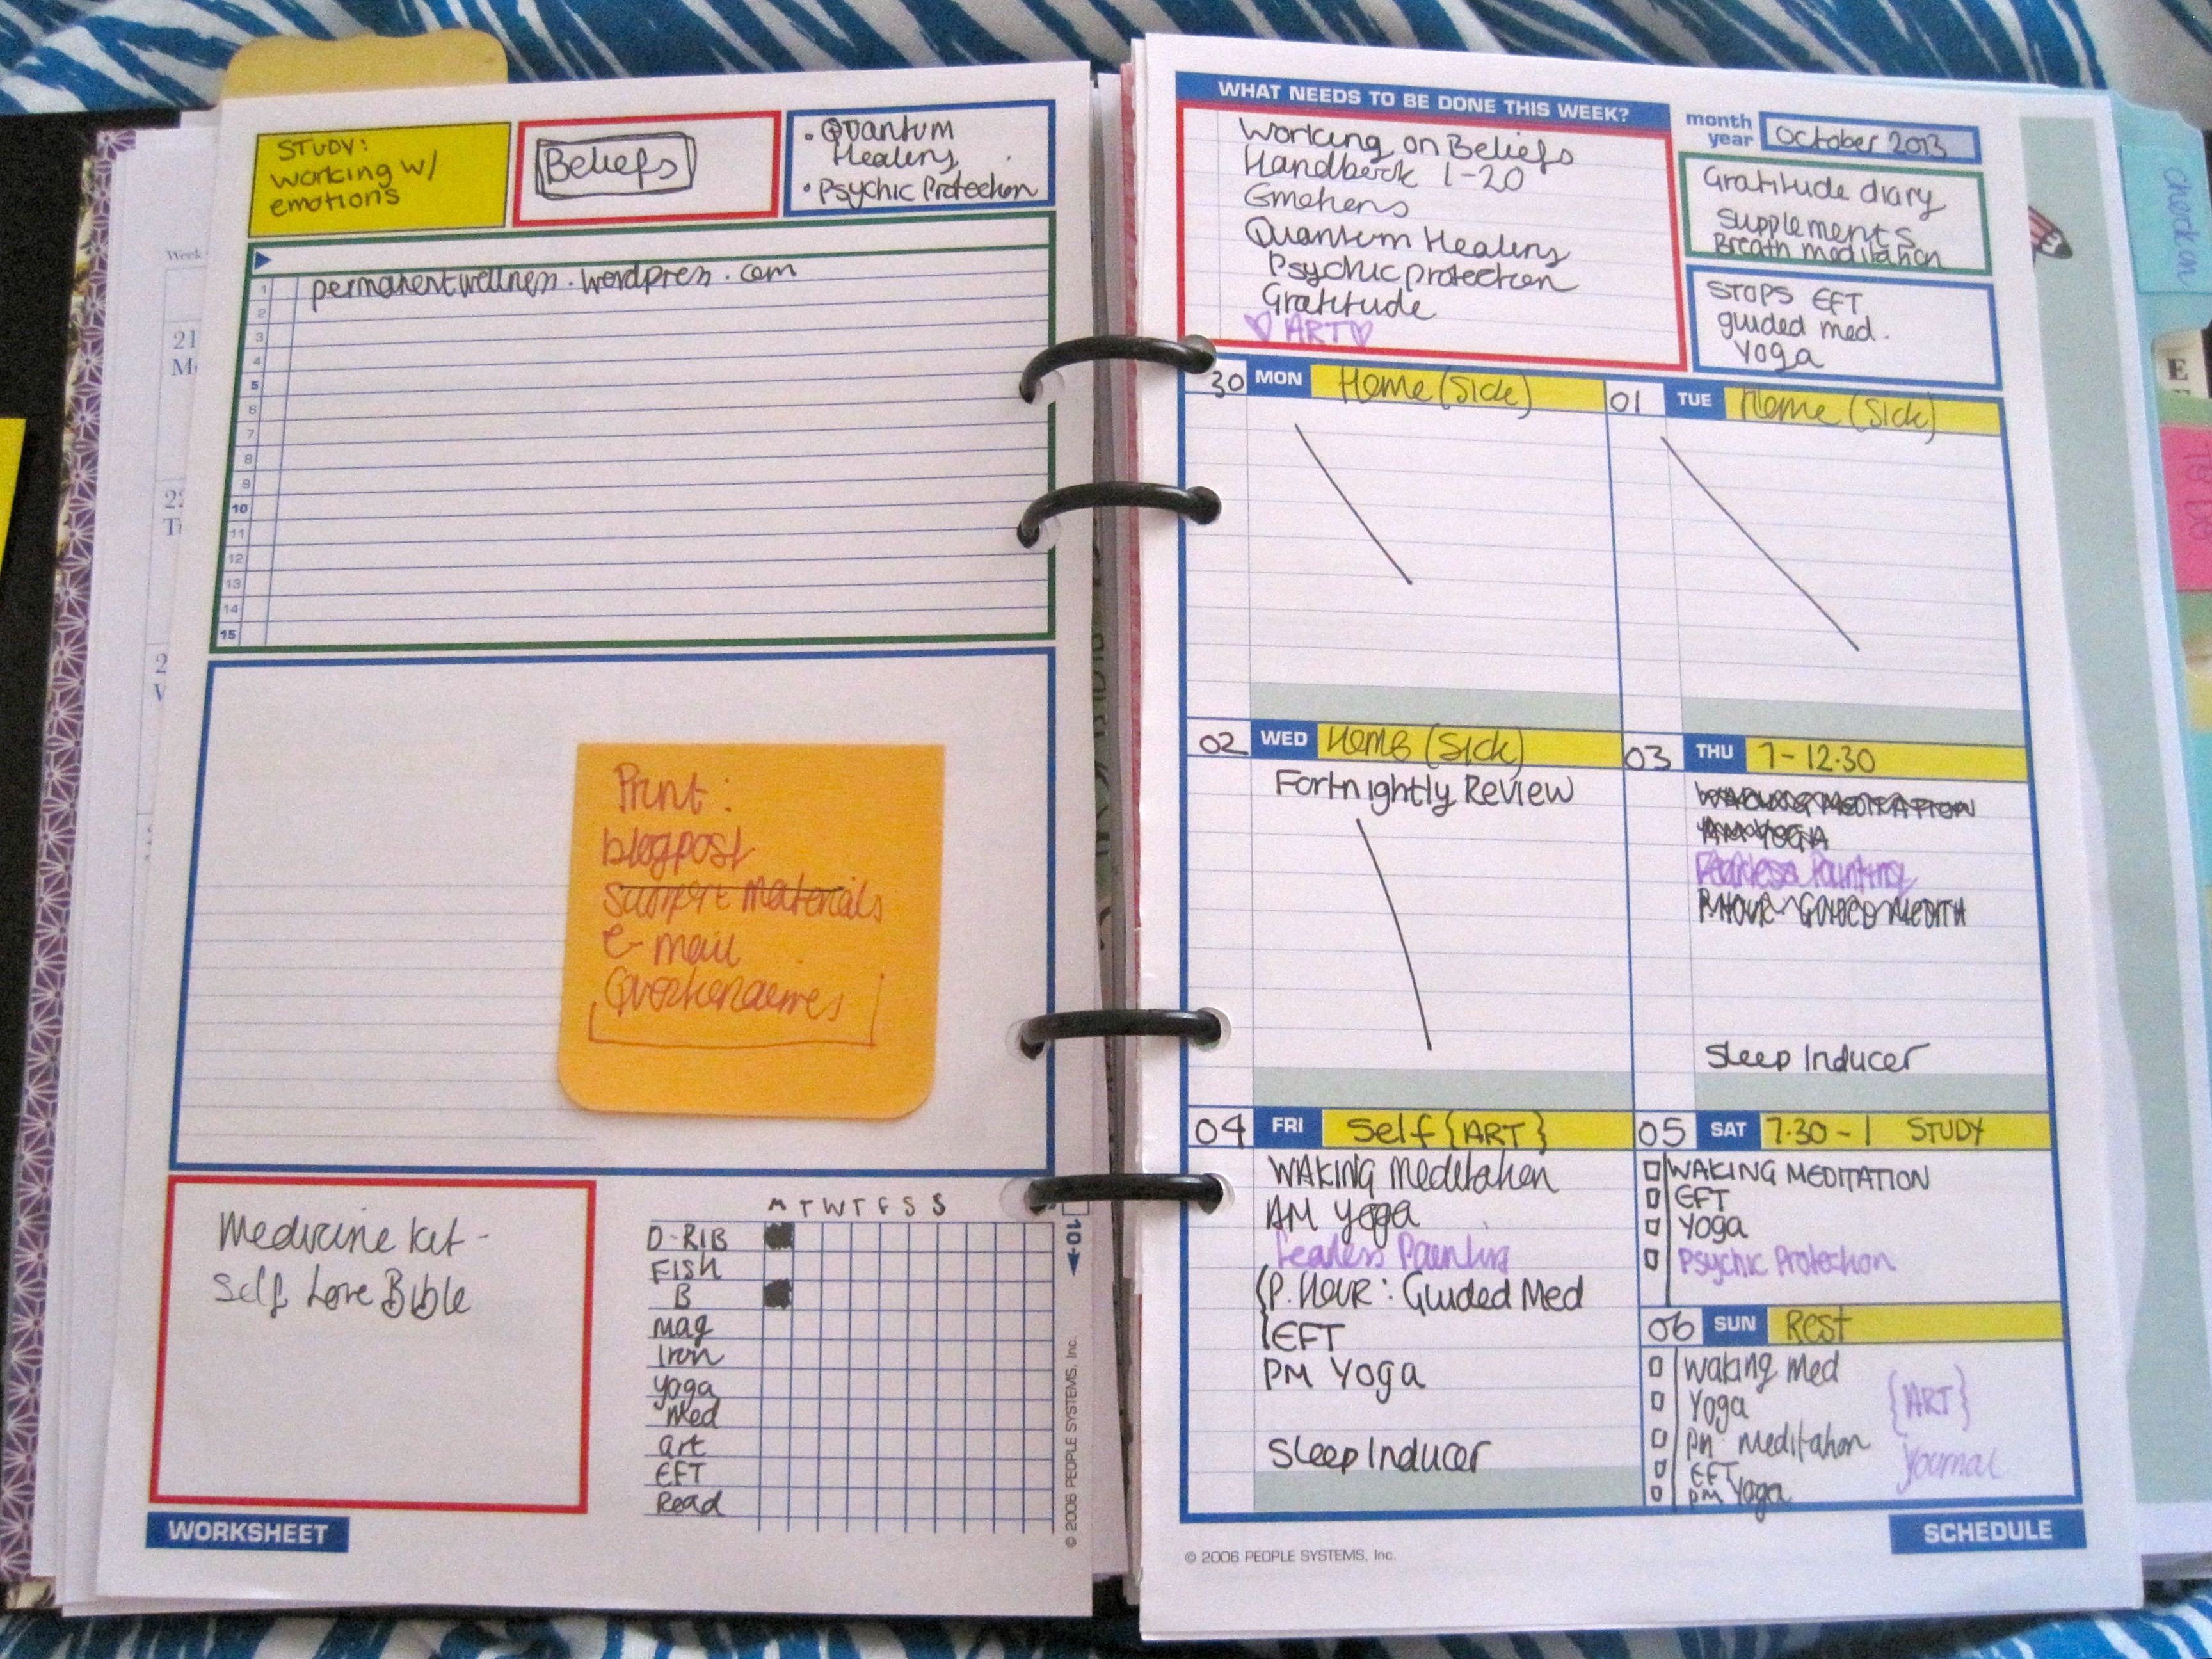 STUDY:
working w/
emotions
Beliefs
• Quantum
Healing
• Psychic Protection
permanentwellness.wordpress.com
1
2
3
4
5
6
7
8
9
10
11
12
13
14
15
Print:
blogpost
support materials
e-mail
Medicine kit -
Self Love Bible
M T W T F S S
D-RIB
FISH
B
Mag
Iron
Yoga
Med
art
EFT
Read
10
© 2006 PEOPLE SYSTEMS, Inc.
WORKSHEET
Week
21
22
WHAT NEEDS TO BE DONE THIS WEEK?
Working on Beliefs
Handbook 1-20
Emotions
Quantum Healing
Psychic protection
Gratitude
♡ ART ♡
month
year
October 2013
Gratitude diary
Supplements
Breath meditation
STOPS EFT
guided med.
Yoga
30 MON Home (Sick)
01 TUE Home (Sick)
02 WED Home (Sick)
Fortnightly Review
03 THU 7-12.30
WAKING MEDITATION
AM YOGA
Fearless Painting
P. HOUR - GUIDED MEDITN
Sleep Inducer
04 FRI Self {ART}
WAKING Meditation
AM yoga
Fearless Painting
P. HOUR: Guided Med
EFT
PM Yoga
Sleep Inducer
05 SAT 7.30-1 STUDY
WAKING MEDITATION
EFT
Yoga
Psychic Protection
06 SUN Rest
Waking Med
Yoga
PM Meditation
EFT
PM Yoga
{ART}
Journal
SCHEDULE
© 2006 PEOPLE SYSTEMS, Inc.
check in
E
TO DO